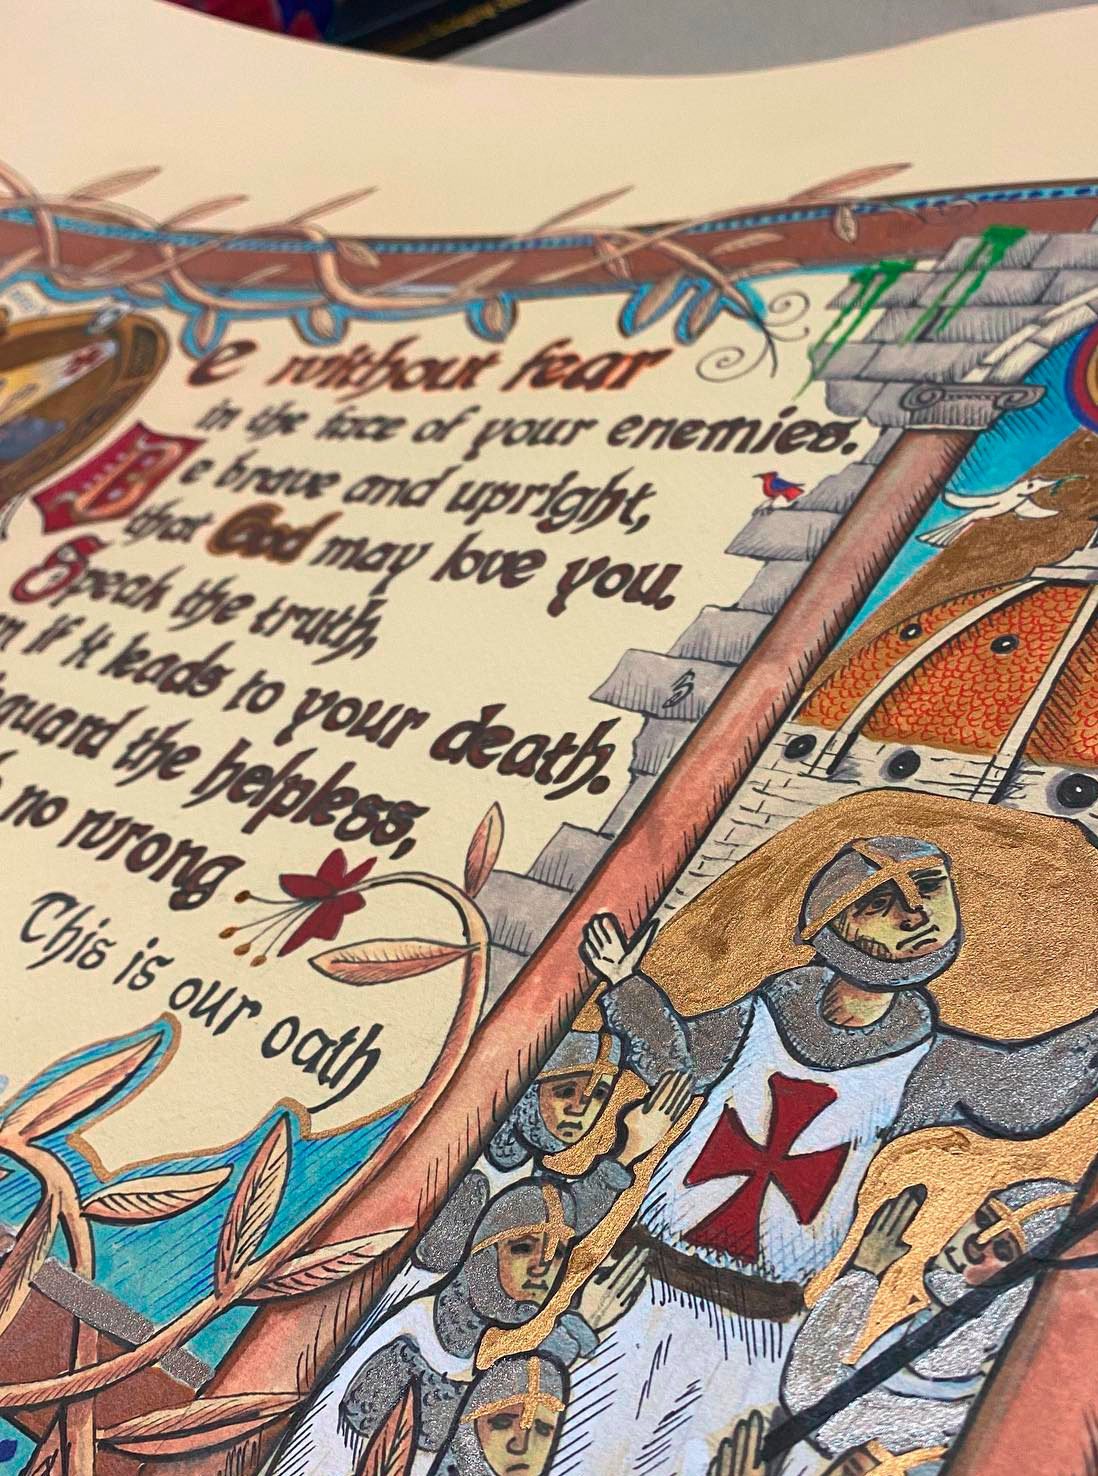 e without fear
in the face of your enemies.
Be brave and upright,
that God may love you.
Speak the truth,
n if it leads to your death.
guard the helpless,
no wrong
This is our oath